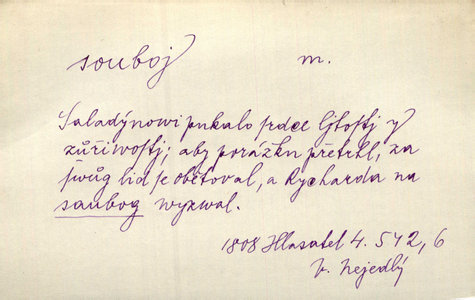 souboj m.
Saladýnowi pukalo srdce ljtostj y
zůřiwostj; aby porážku přetrhl, za
swůg lid se obětoval, a Rycharda na
saubog wyzwal.
1808 Hlasatel 4. 542, 6
V. Nejedlý